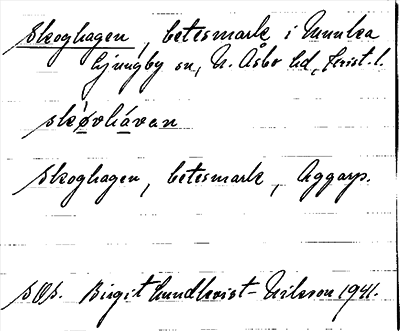 Skoghagen, betesmark i Munka
Ljungby sn, N. Åsbo hd, Krist. l.
skòvhávan
Skoghagen, betesmark, Aggarp.
SOS. Birgit Lundkvist-Nilsson 1941.